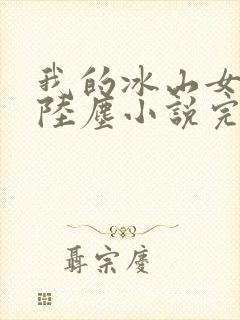 我的冰山女
陸塵小說完
聶宗慶